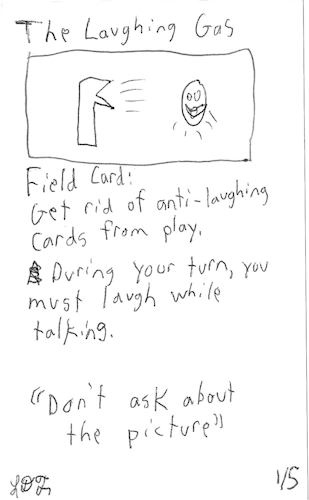 The Laughing Gas
Field Card:
Get rid of anti-laughing
cards from play.
During your turn, you
must laugh while
talking.
"Don't ask about
the picture"
1/5